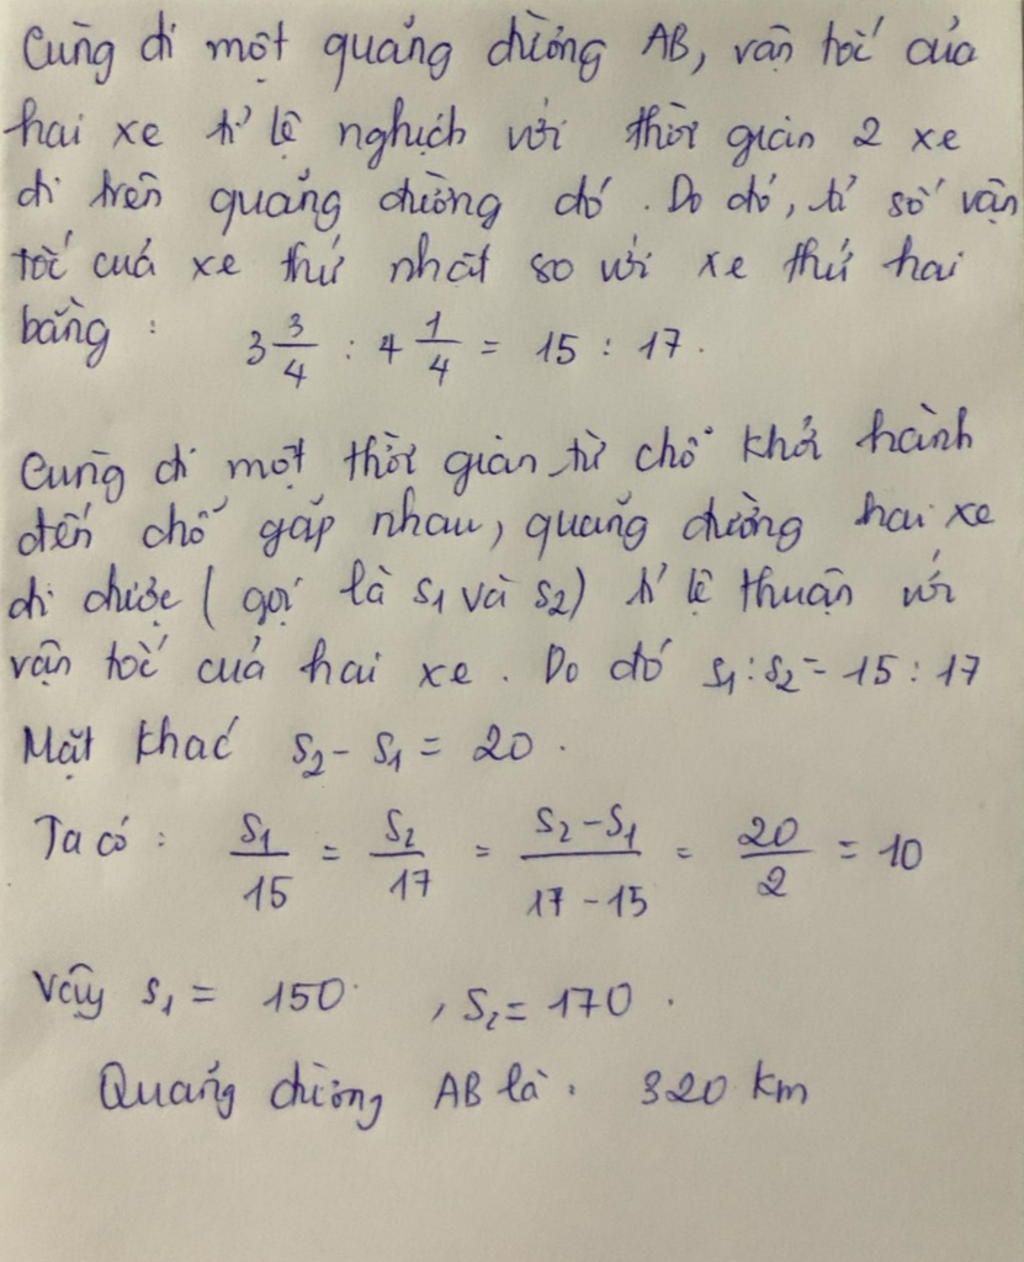 Cùng đi một quãng đường AB, vận tốc của
hai xe tỉ lệ nghịch với thời gian 2 xe
đi trên quãng đường đó. Do đó, tỉ số vận
tốc của xe thứ nhất so với xe thứ hai
bằng : 3 3/4 : 4 1/4 = 15 : 17.
Cùng đi một thời gian từ chỗ khởi hành
đến chỗ gặp nhau, quãng đường hai xe
đi được ( gọi là s₁ và s₂) tỉ lệ thuận với
vận tốc của hai xe. Do đó s₁ : s₂ = 15 : 17
Mặt khác s₂ - s₁ = 20.
Ta có : s₁/15 = s₂/17 = (s₂ - s₁)/(17 - 15) = 20/2 = 10
Vậy s₁ = 150 , s₂ = 170.
Quãng đường AB là : 320 km